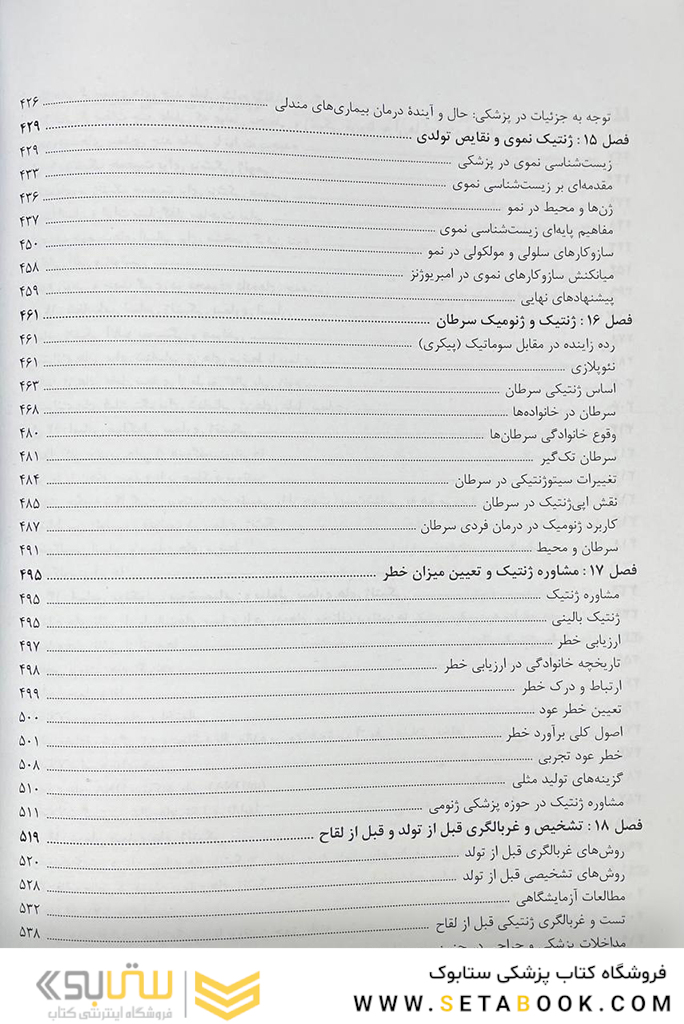 توجه به جزئیات در پزشکی: حال و آیندهٔ درمان بیماری‌های مندلی ........ ۴۲۶
فصل ۱۵: ژنتیک نموی و نقایص تولدی ........ ۴۲۹
زیست‌شناسی نموی در پزشکی ........ ۴۲۹
مقدمه‌ای بر زیست‌شناسی نموی ........ ۴۳۳
ژن‌ها و محیط در نمو ........ ۴۳۶
مفاهیم پایه‌ای زیست‌شناسی نموی ........ ۴۳۷
سازوکارهای سلولی و مولکولی در نمو ........ ۴۵۰
میانکنش سازوکارهای نموی در امبریوژنز ........ ۴۵۸
پیشنهادهای نهایی ........ ۴۵۹
فصل ۱۶: ژنتیک و ژنومیک سرطان ........ ۴۶۱
رده زاینده در مقابل سوماتیک (پیکری) ........ ۴۶۱
نئوپلازی ........ ۴۶۱
اساس ژنتیکی سرطان ........ ۴۶۳
سرطان در خانواده‌ها ........ ۴۶۸
وقوع خانوادگی سرطان‌ها ........ ۴۸۰
سرطان تک‌گیر ........ ۴۸۱
تغییرات سیتوژنتیکی در سرطان ........ ۴۸۴
نقش اپی‌ژنتیک در سرطان ........ ۴۸۵
کاربرد ژنومیک در درمان فردی سرطان ........ ۴۸۷
سرطان و محیط ........ ۴۹۱
فصل ۱۷: مشاوره ژنتیک و تعیین میزان خطر ........ ۴۹۵
مشاوره ژنتیک ........ ۴۹۵
ژنتیک بالینی ........ ۴۹۵
ارزیابی خطر ........ ۴۹۷
تاریخچه خانوادگی در ارزیابی خطر ........ ۴۹۸
ارتباط و درک خطر ........ ۴۹۹
تعیین خطر عود ........ ۵۰۰
اصول کلی برآورد خطر ........ ۵۰۱
خطر عود تجربی ........ ۵۰۸
گزینه‌های تولید مثلی ........ ۵۱۰
مشاوره ژنتیک در حوزه پزشکی ژنومی ........ ۵۱۱
فصل ۱۸: تشخیص و غربالگری قبل از تولد و قبل از لقاح ........ ۵۱۹
روش‌های غربالگری قبل از تولد ........ ۵۲۰
روش‌های تشخیصی قبل از تولد ........ ۵۲۸
مطالعات آزمایشگاهی ........ ۵۳۲
تست و غربالگری ژنتیکی قبل از لقاح ........ ۵۳۸
مداخلات پزشکی و جراحی در
فروشگاه کتاب پزشکی ستابوک
WWW.SETABOOK.COM
ستابوک
فروشگاه اینترنتی کتاب